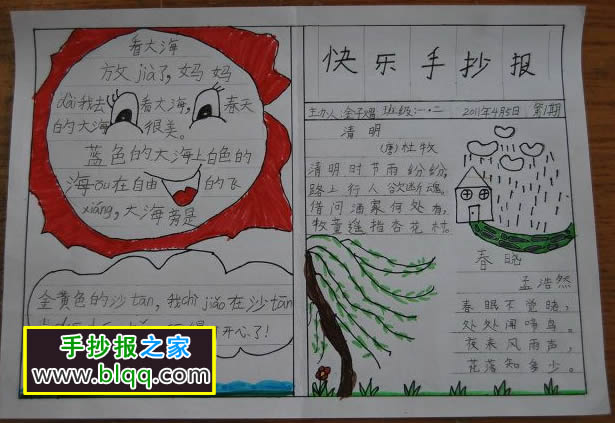 看大海
放jià了,妈妈
dài我去看大海,春天
的大海很美。
蓝色的大海上白色的
海ōu在自由的飞
xiáng,大海旁是
金黄色的沙tān,我chì jiǎo在沙tān
开心了!
手抄报之家
www.blqq.com
快乐手抄报
主办人:金 班级:一.二 2011年4月5日 第1期
清明
(唐)杜牧
清明时节雨纷纷,
路上行人欲断魂,
借问酒家何处有,
牧童遥指杏花村。
春晓
孟浩然
春眠不觉晓,
处处闻啼鸟。
夜来风雨声,
花落知多少。